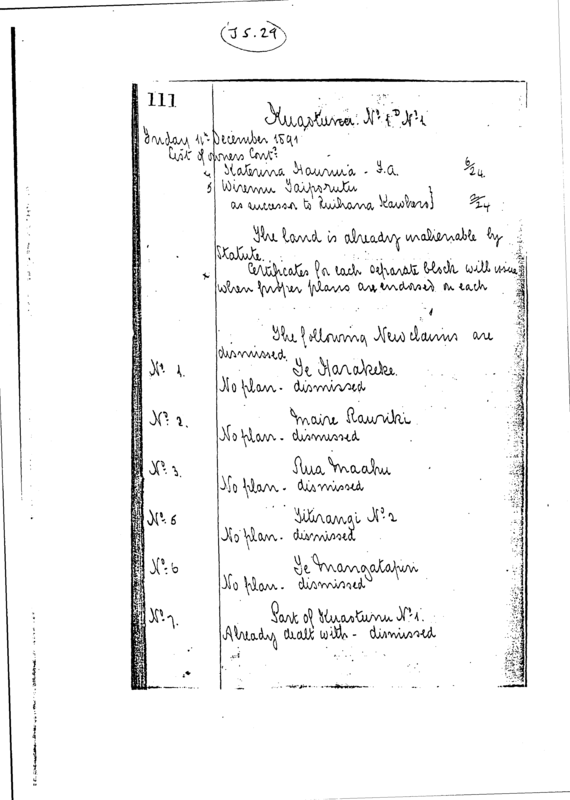 J S. 29
111
Kuaotunu Nº 1
Friday 11th December 1891
List of owners Contd
4 Katerina Hauruia - F.A. 6/24
5 Wiremu Taiporutu
as successor to Ruihana Kawhero}
/24
The land is already inalienable by
Statute.
Certificates for each separate block will issue
when proper plans are endorsed on each
The following New claims are
dismissed.
Nº 1. Te Harakeke.
No plan - dismissed
Nº 2. Maire Rawriki
No plan - dismissed
Nº 3. Rua Maahu
No plan - dismissed
Nº 5 Titirangi Nº 2
No plan - dismissed
Nº 6 Te Mangatapiri
No plan - dismissed
Nº 7. Part of Kuaotunu Nº 1.
Already dealt with - dismissed